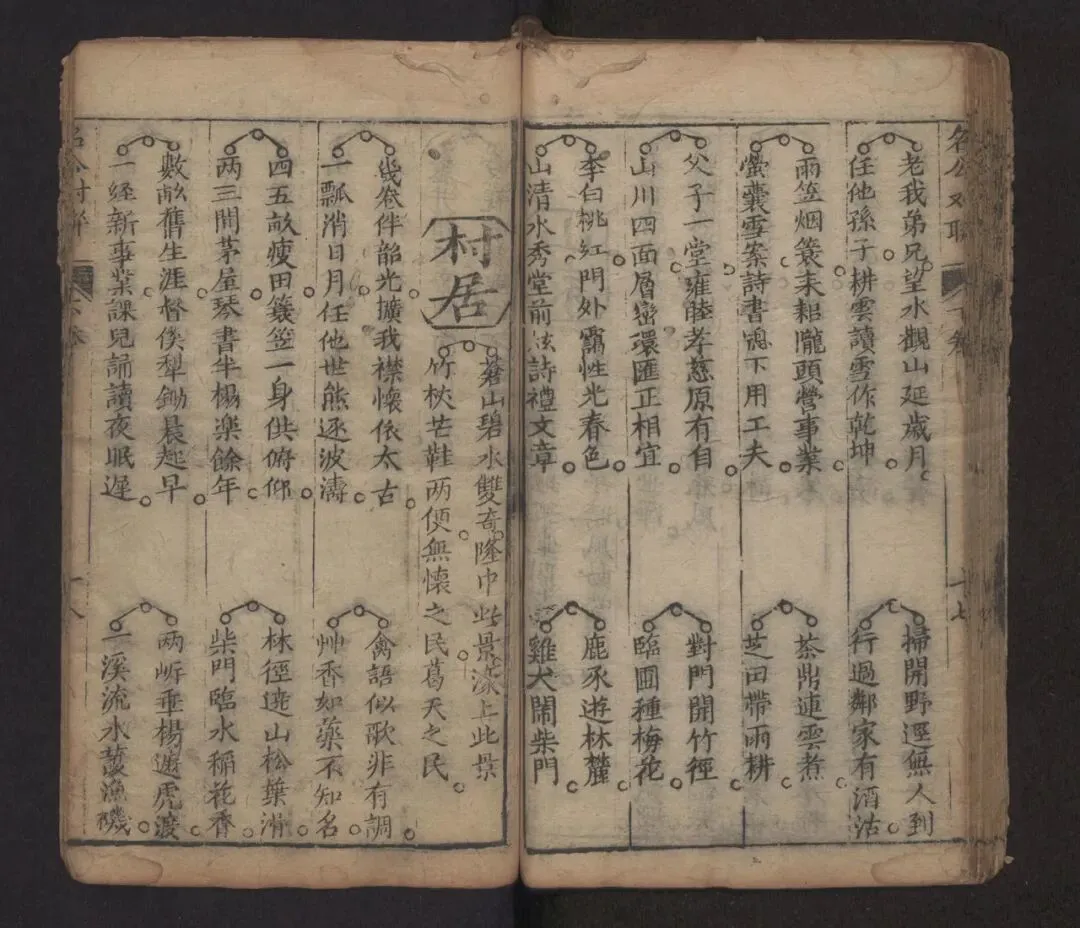 名公对联
十七
老我弟兄望水觀山延歲月
任他孫子耕雲讀雪作乾坤
掃開野逕無人到
行過鄰家有酒沽
雨笠烟簑耒耜隴頭營事業
螢囊雪案詩書窓下用工夫
茶鼎連雲煮
芝田帶雨耕
父子一堂雍睦孝慈原有自
山川四面層巒環匯正相宜
對門開竹徑
臨圃種梅花
李白桃紅門外霭性光春色
山清水秀堂前詩禮文章
鹿豕遊林麓
雞犬鬧柴門
村居
蒼山碧水雙奇隆中此景濠上此景
竹杖芒鞋两便無懷之民葛天之民
幾卷伴韶光擴我襟懷依太古
一瓢消日月任他世態逐波濤
禽語似歌非有調
艸香如藥不知名
四五畝瘦田簑笠一身供俯仰
两三間茅屋琴書半榻楽餘年
林徑遶山松葉滑
柴門臨水稲花香
數畝舊生涯督僕犁鋤晨起早
一經新事業課兒誦讀夜眠遲
两岍垂楊遮虎渡
一溪流水護漁磯
名公對聯
十八